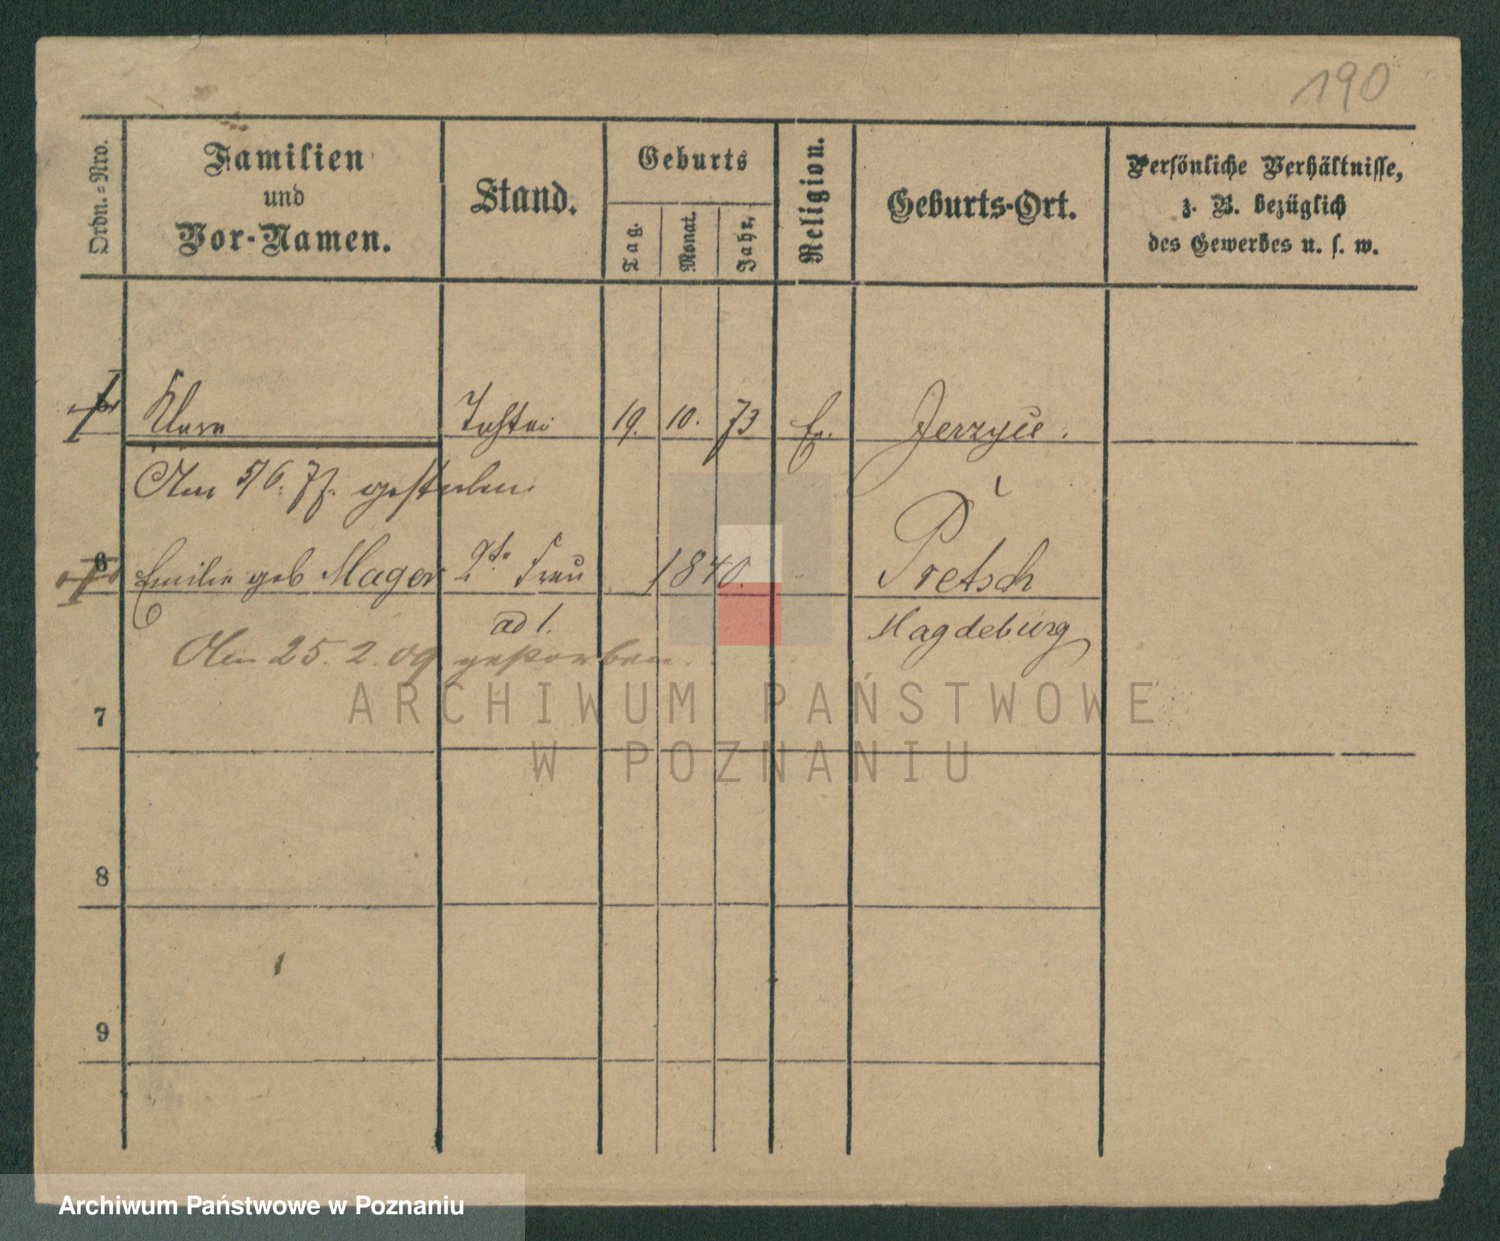 190
Ordn.=Nro.
Familien
und
Vor-Namen.
Stand.
Geburts
Tag.
Monat.
Jahr.
Religion.
Geburts-Ort.
Persönliche Verhältnisse,
z. B. bezüglich
des Gewerbes u. s. w.
Klara Tochter 19. 10. 73 Ev. Jerzyce.
Am 5/6. 77. gestorben.
6 Emilie geb Mager 2te Frau 1840. Pretsch
ad 1. Magdeburg
Am 25. 2. 09 gestorben.
7
8
9
ARCHIWUM PAŃSTWOWE
W POZNANIU
Archiwum Państwowe w Poznaniu